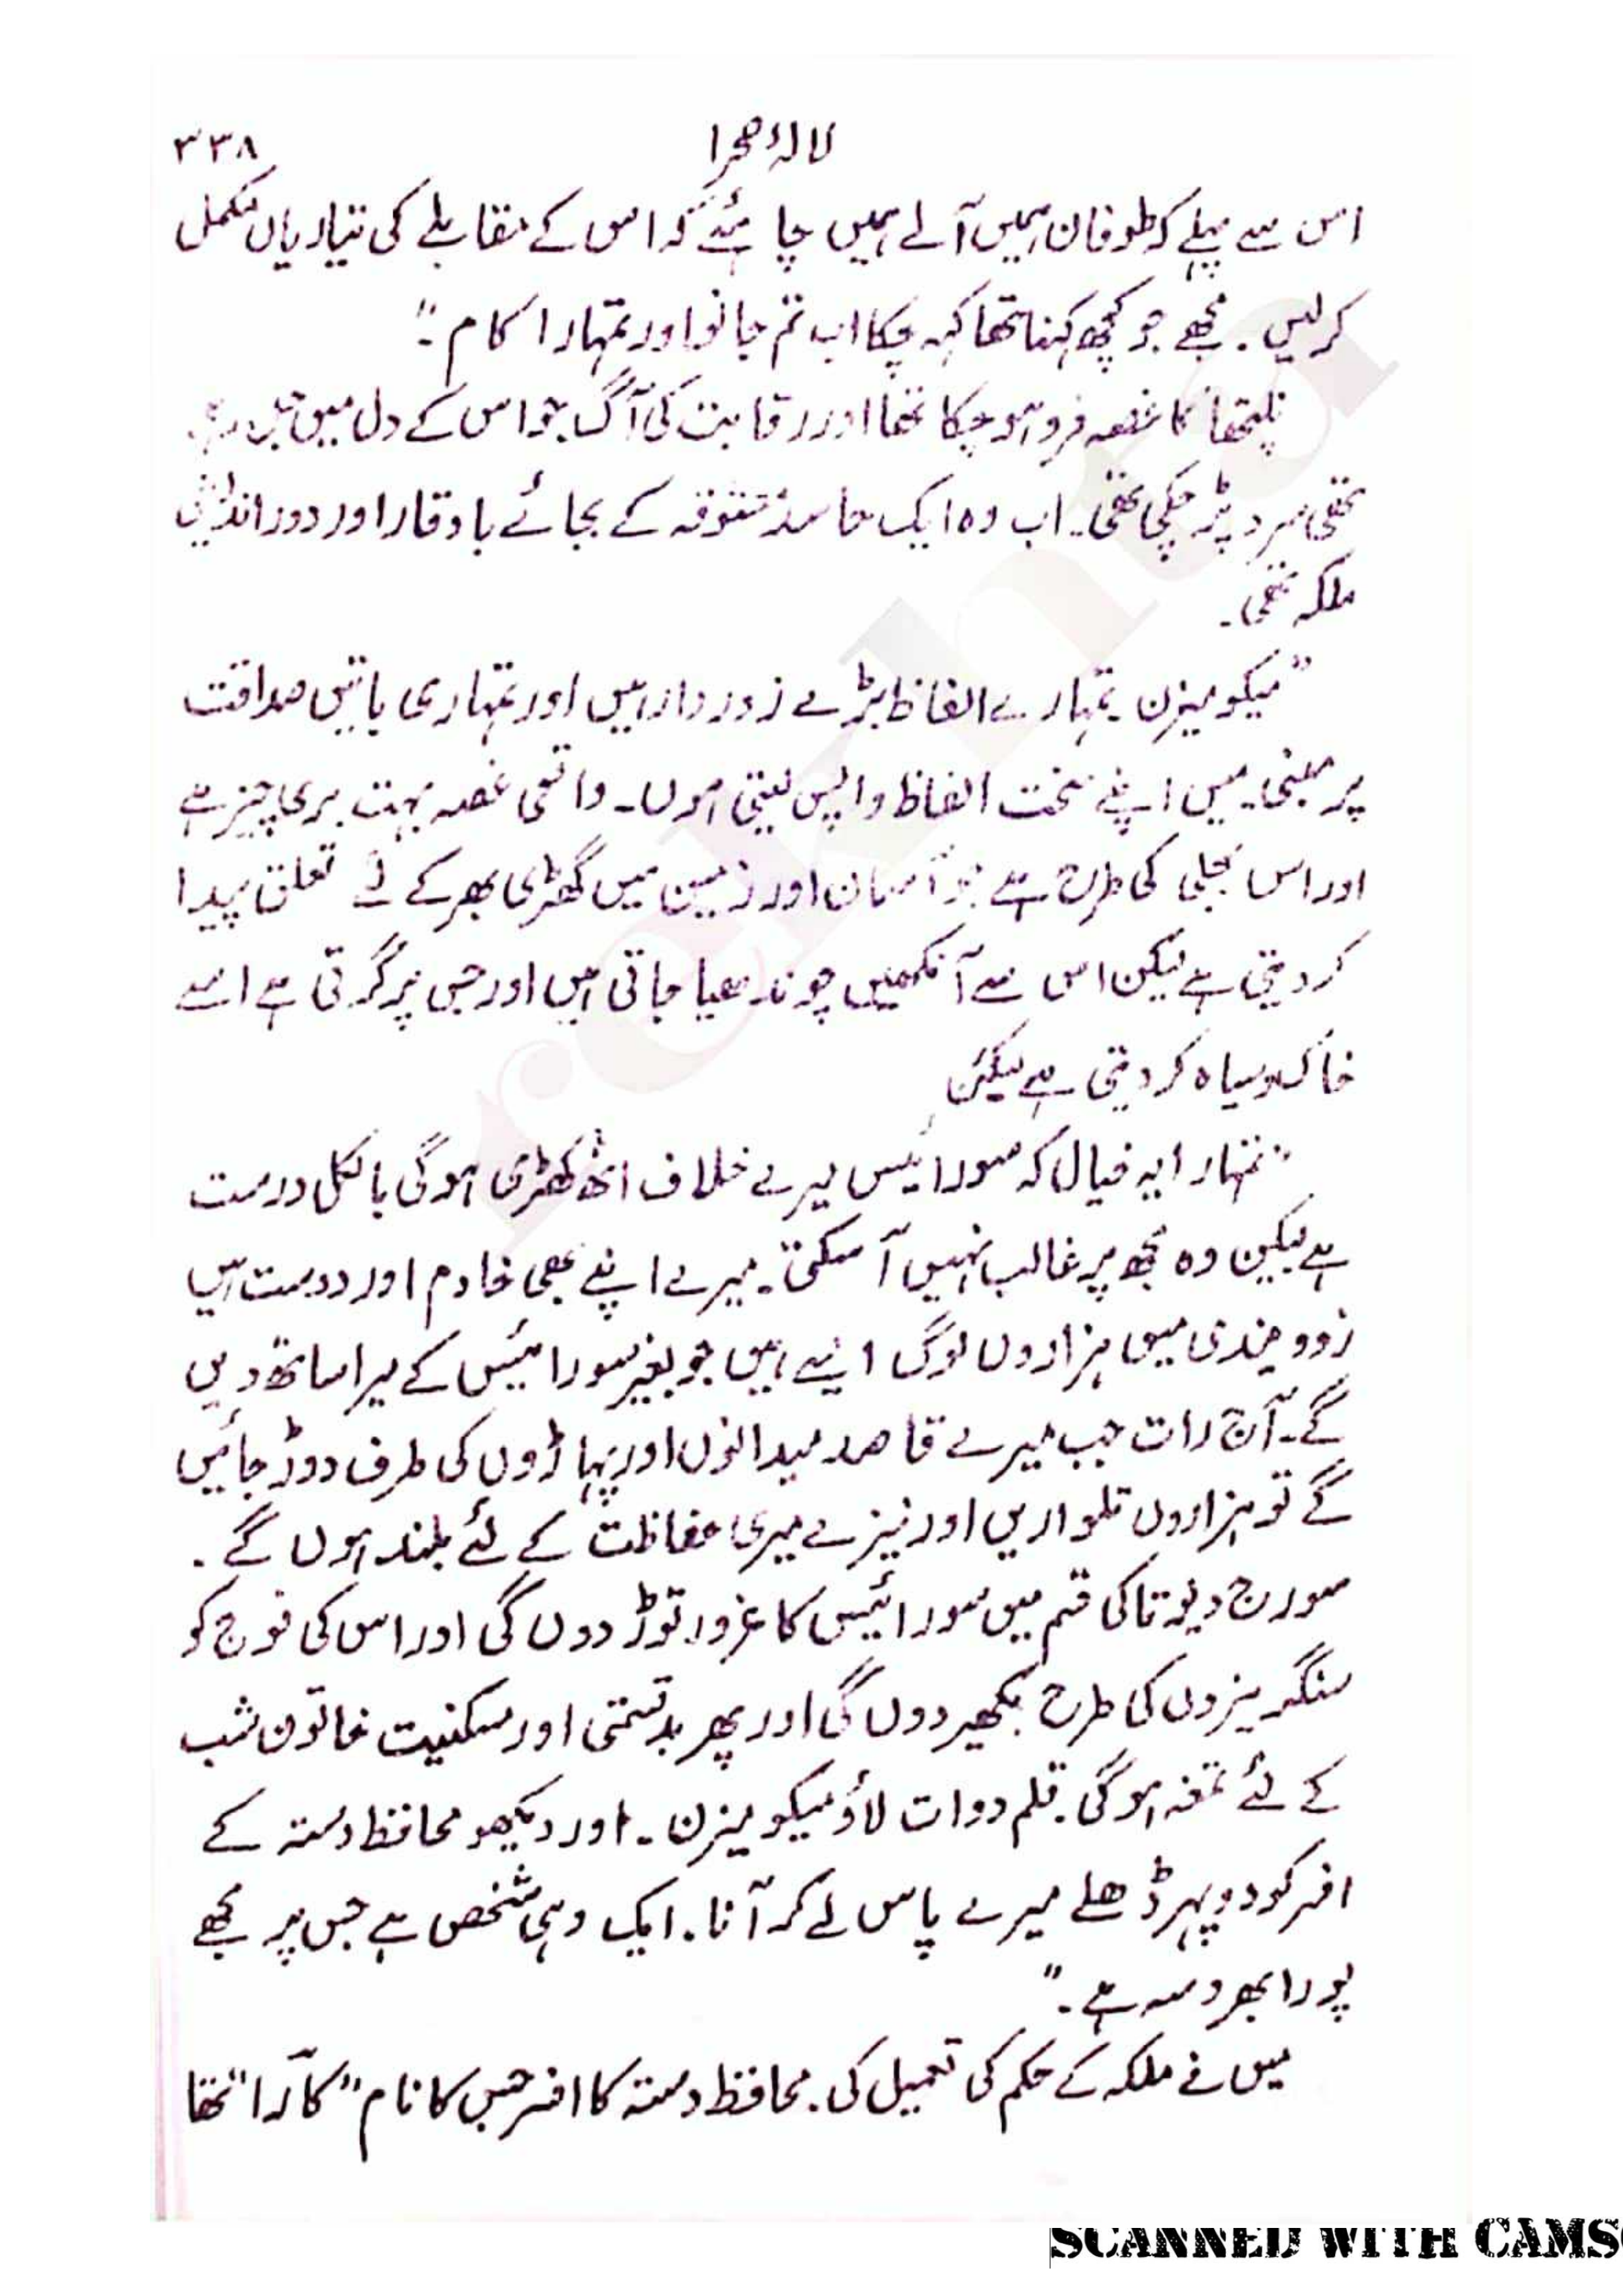 لالۂ صحرا ۳۳۸
اس سے پہلے کہ طوفان ہمیں آلے ہمیں چاہئے کہ اس کے مقابلے کی تیاریاں مکمل
کرلیں۔ مجھے جو کچھ کہنا تھا کہہ چکا اب تم جانو اور تمہارا کام۔"
نلیتھا کا غصہ فرو ہوچکا تھا اور رقابت کی آگ جو اس کے دل میں جل رہی
تھی سرد پڑ چکی تھی۔ اب وہ ایک حاسد معشوقہ کے بجائے باوقار اور دوراندیش
ملکہ تھی۔
"میکومیزن تمہارے الفاظ بڑے زوردار ہیں اور تمہاری باتیں صداقت
پر مبنی۔ میں اپنے سخت الفاظ واپس لیتی ہوں۔ واقعی غصہ بہت بری چیز ہے
اور اس بجلی کی طرح ہے جو آسمان اور زمین میں گھڑی بھر کے لئے تعلق پیدا
کردیتی ہے لیکن اس سے آنکھیں چوندھیا جاتی ہیں اور جس پر گرتی ہے اسے
خاک سیاہ کردیتی ہے لیکن
"تمہارا یہ خیال کہ سورائیس میرے خلاف اٹھ کھڑی ہوگی بالکل درست
ہے لیکن وہ مجھ پر غالب نہیں آسکتی۔ میرے اپنے بھی خادم اور دوست ہیں
زوویندی میں ہزاروں لوگ ایسے ہیں جو بغیر سورائیس کے میرا ساتھ دیں
گے۔ آج رات جب میرے قاصد میدانوں اور پہاڑوں کی طرف دوڑ جائیں
گے تو ہزاروں تلواریں اور نیزے میری حفاظت کے لئے بلند ہوں گے۔
سورج دیوتا کی قسم میں سورائیس کا غرور توڑ دوں گی اور اس کی فوج کو
سنگریزوں کی طرح بکھیر دوں گی اور پھر بدقسمتی اور مسکنیت خاتون شب
کے لئے تمغہ ہوگی۔ قلم دوات لاؤ میکومیزن۔ اور دیکھو محافظ دستہ کے
افسر کو دوپہر ڈھلے میرے پاس لے کر آنا۔ ایک وہی شخص ہے جس پر مجھے
پورا بھروسہ ہے۔"
میں نے ملکہ کے حکم کی تعمیل کی۔ محافظ دستہ کا افسر جس کا نام "کارا" تھا
rekhta
SCANNED WITH CAMS